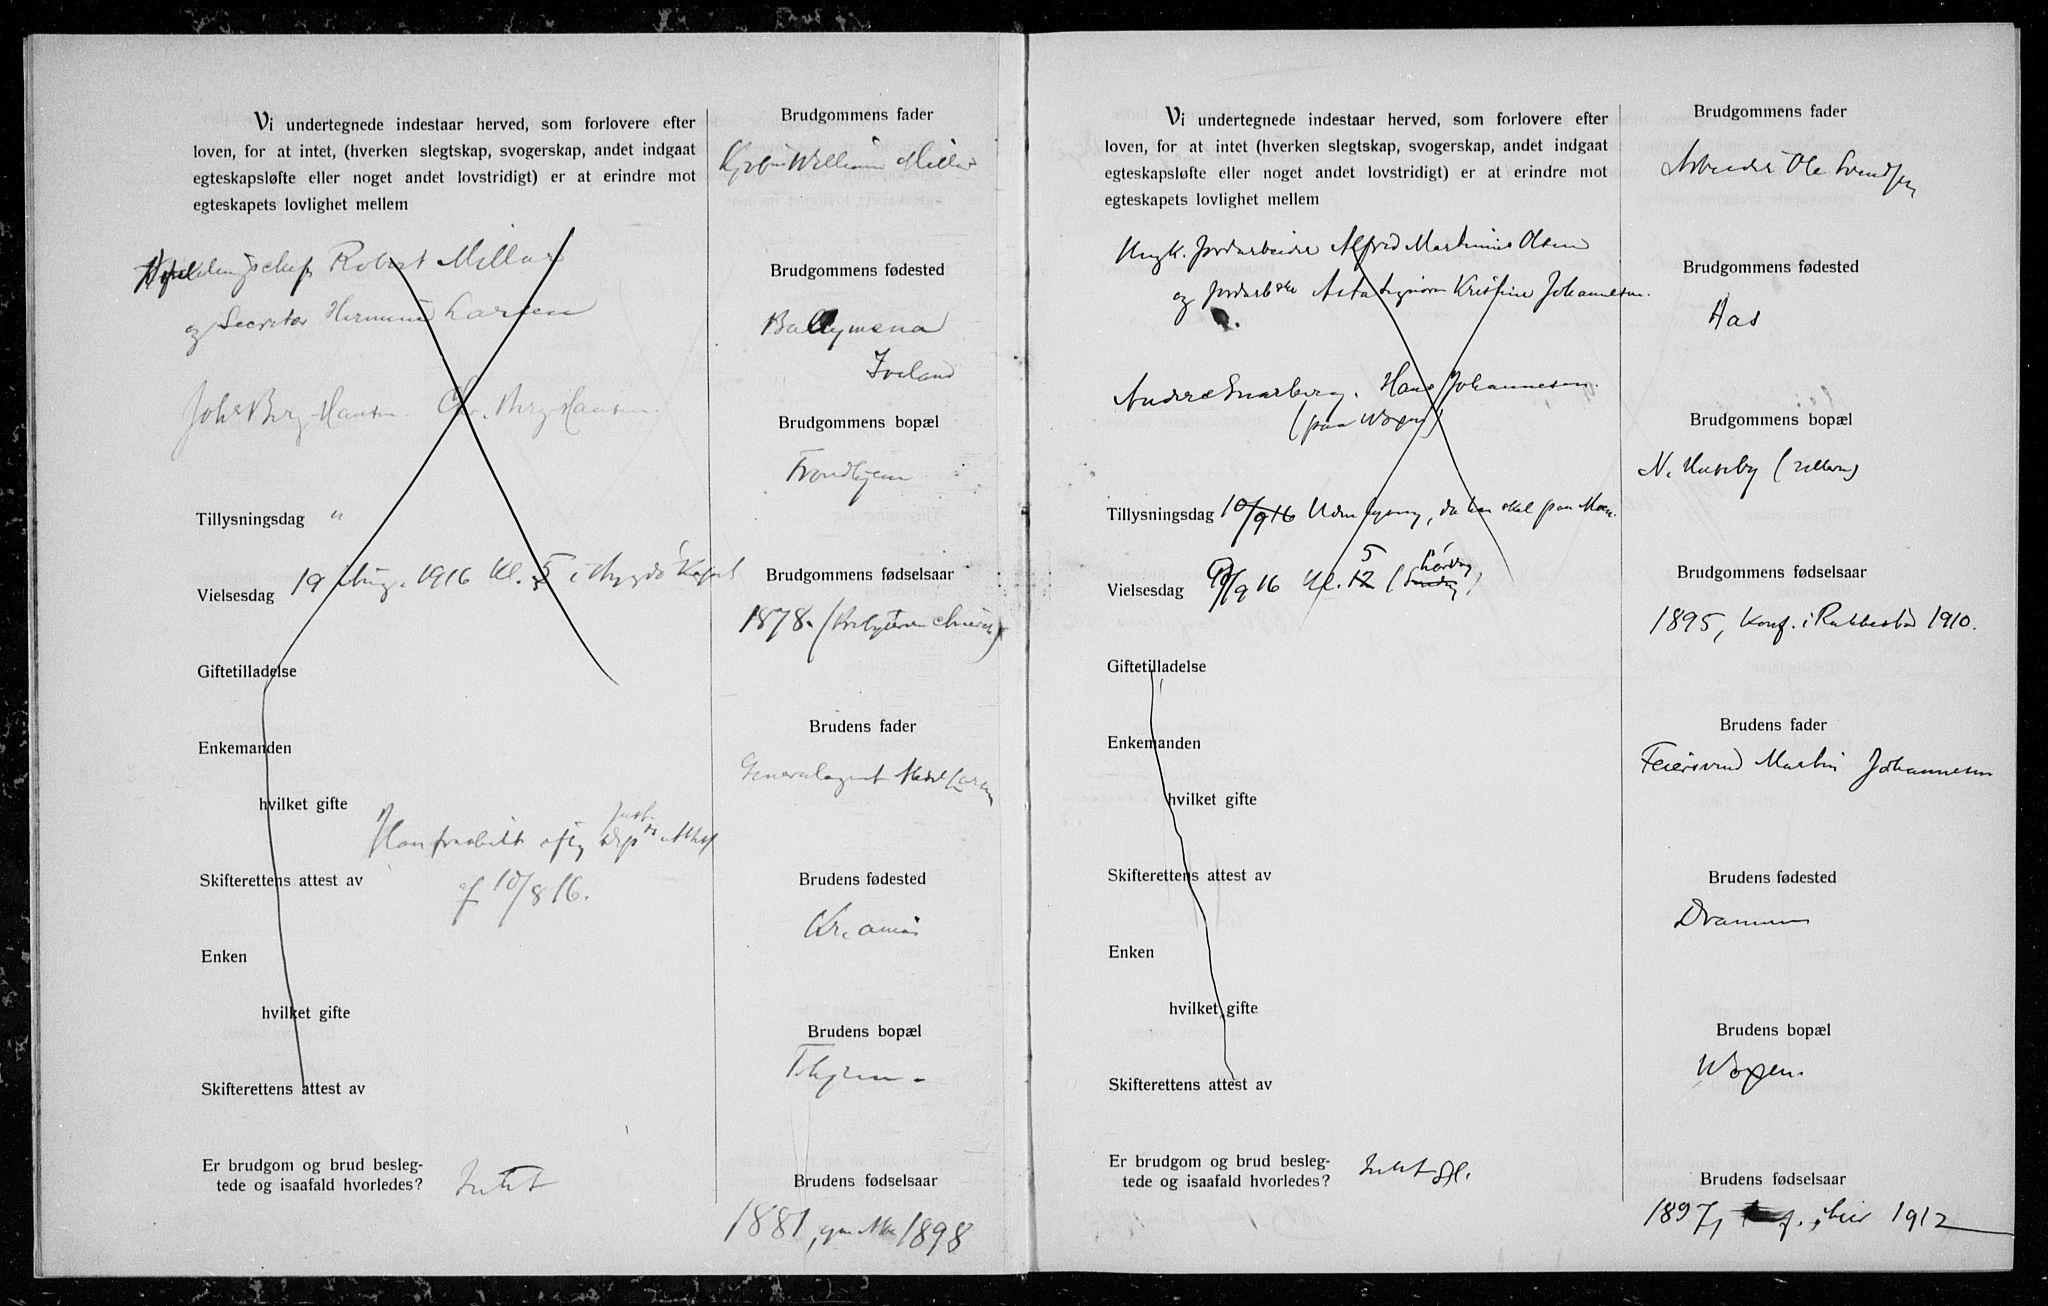 Vi undertegnede indestaar herved, som forlovere efter
loven, for at intet, (hverken slegtskap, svogerskap, andet indgaat
egteskapsløfte eller noget andet lovstridigt) er at erindre mot
egteskapets lovlighet mellem
Robert Millar
og Secretær Hermine Larsen
Johs Berg-Hansen. Chr. Berg-Hansen.
Tillysningsdag "
Vielsesdag 19 Aug. 1916 Kl. 5 i Bygdø
Giftetilladelse
Enkemanden
hvilket gifte
Han
Skifterettens attest av
af 10/8 16.
Enken
hvilket gifte
Skifterettens attest av
Er brudgom og brud besleg-
tede og isaafald hvorledes? Intet
Brudgommens fader
William Millar
Brudgommens fødested
Ballymena
Irland
Brudgommens bopæl
Trondhjem
Brudgommens fødselsaar
1878. (
Brudens fader
Generalagent Larsen
Brudens fødested
Kr.ania
Brudens bopæl
Thjem.
Brudens fødselsaar
1881, 1898
Vi undertegnede indestaar herved, som forlovere efter
loven, for at intet (hverken slegtskap, svogerskap, andet indgaat
egteskapsløfte eller noget andet lovstridigt) er at erindre mot
egteskapets lovlighet mellem
Ungk. Jordarbeider Alfred Martinius Olsen
og Asta Signora Kristine Johannesen.
Anders Snarberg. Hans Johannesen.
(paa Woxen)
Tillysningsdag 10/9 16 da han skal paa
Vielsesdag 9/9 16 Kl. 12 5 (Søndag Lørdag)
Giftetilladelse
Enkemanden
hvilket gifte
Skifterettens attest av
Enken
hvilket gifte
Skifterettens attest av
Er brudgom og brud besleg-
tede og isaafald hvorledes? Intet
Brudgommens fader
Arbeider Ole Svendsen
Brudgommens fødested
Aas
Brudgommens bopæl
N. Huseby (
Brudgommens fødselsaar
1895, Konf. i 1910.
Brudens fader
Feiersvend Martin Johannesen
Brudens fødested
Drammen
Brudens bopæl
Woxen.
Brudens fødselsaar
1897, her 1912